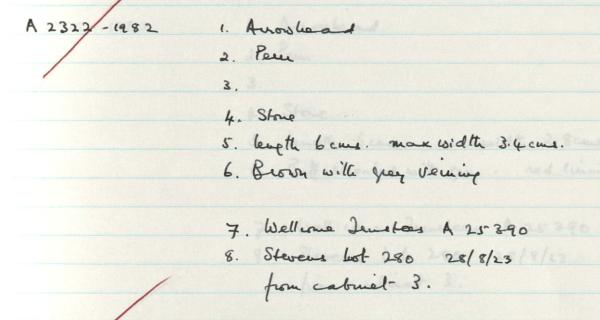 A 2322-1982 1. Arrowhead
2. Peru
3.
4. Stone
5. length 6cms. max width 3.4cms.
6. Brown with grey veining
7. Wellcome Trustees A 25390
8. Stevens Lot 280 28/8/23
from cabinet 3.